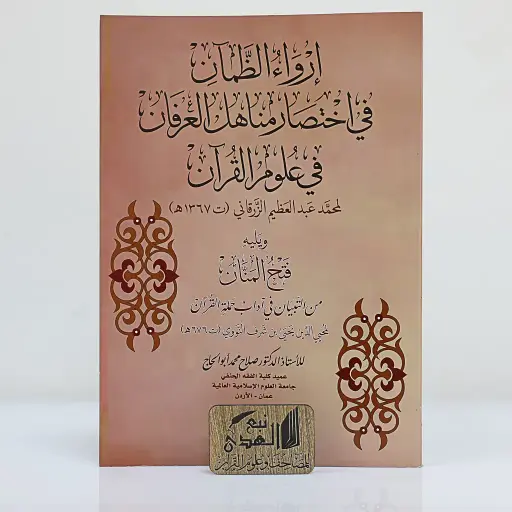 إرواء الظمآن
في اختصار مناهل العرفان
في علوم القرآن
لمحمد عبد العظيم الزرقاني (ت١٣٦٧هـ)
ويليه
فتح المنان
من التبيان في آداب حملة القرآن
لمحيي الدين يحيى بن شرف النووي (ت٦٧٦هـ)
للأستاذ الدكتور صلاح محمد أبو الحاج
عميد كلية الفقه الحنفي
جامعة العلوم الإسلامية العالمية
عمان - الأردن
نبع
الهدى
للمصاحف وعلوم القرآن